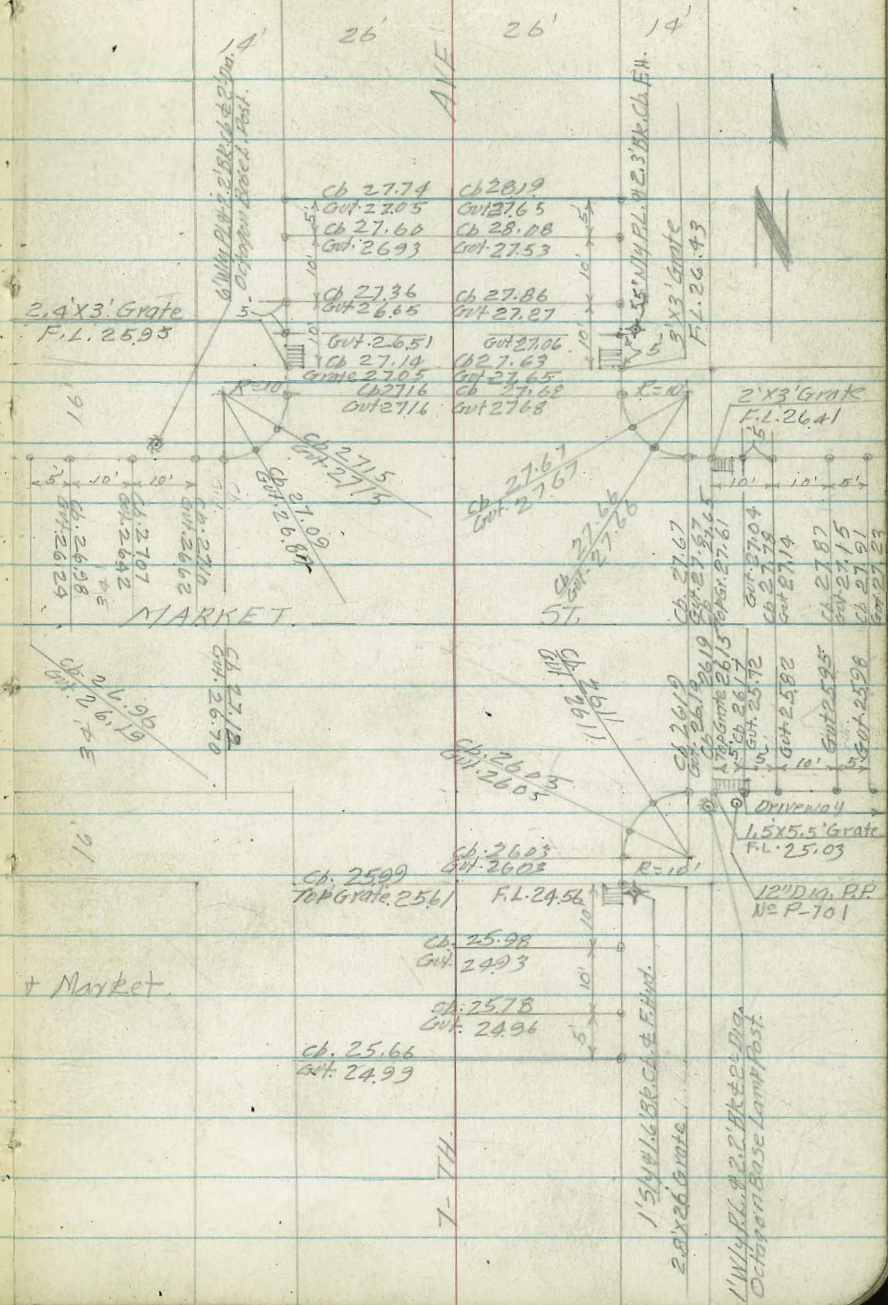 14'
26'
26'
14'
AVE
6' Wly PL & 2.2' Bk. Cb & 2' Dia.
Octagon Base L. Post.
5.5' Nly P.L. & 2.3' Bk. Cb. F.H.
3'X3' Grate
F.L. 26.43
Cb 27.74
Gut. 27.05
Cb 27.60
Gut. 26.93
Cb 27.36
Gut 26.65
Gut 26.51
Cb 27.14
Grate 27.05
Cb 27.16
Gut 27.16
Cb 28.19
Gut 27.65
Cb 28.08
Gut. 27.53
Cb 27.86
Gut 27.27
Gut 27.06
Cb 27.63
Gut 27.65
Cb 27.68
Gut 27.68
5'
10'
10'
5
5'
10'
10'
5
2.4'X3' Grate
F.L. 25.95
R=10'
R=10'
2'X3' Grate
F.L. 26.41
5'
16
5'
10'
10'
10'
10'
5'
Cb 27.15
Gut. 27.15
Cb 27.09
Gut. 26.84
Cb 27.67
Gut. 27.67
Cb 27.66
Gut. 27.66
Cb. 26.98
Gut. 26.24
Cb. 27.07
Gut. 26.42
Cb. 27.10
Gut. 26.62
Cb. 27.67
Gut. 27.67
Cb 27.65
Top Gr. 27.61
Gut. 27.04
Cb 27.78
Gut 27.14
Cb 27.87
Gut. 27.15
Cb 27.91
Gut 27.23
MARKET
ST.
Cb. 27.12
Gut. 26.70
Cb. 26.19
Gut. 26.19
Cb 26.19
Top Grate 26.15
Cb 26.17
Gut. 25.72
Gut. 25.82
Gut 25.95
Gut 25.98
5'
5
10'
5'
Cb. 26.03
Gut. 26.03
Driveway
1.5X5.5' Grate
F.L. 25.03
Cb. 26.03
Gut. 26.03
R=10'
Cb. 25.99
Top Grate. 25.61
F.L. 24.56
12" Dia. P.P.
No P-701
10
Cb. 25.98
Gut. 24.93
10'
+ Market.
Cb. 25.78
Gut. 24.96
5'
Cb. 25.66
Gut. 24.99
7-TH.
1' Sly & 1.6' Bk. Cb. & F. Hyd.
2.8'X26' Grate
1' Wly P.L. & 2.2' Bk & 2' Dia.
Octagon Base Lamp Post.